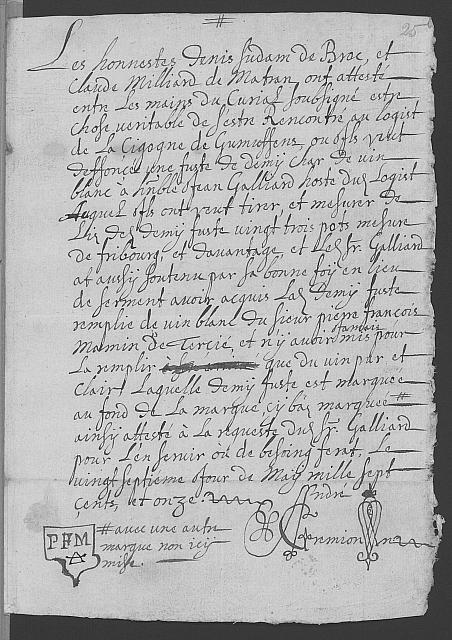 #
25
Les honnestes denis sudam de Broc, et
Claude Milliard de Matran, ont attesté
entre Les mains du Curial soubsigné estre
chose veritable de s'estre Rencontre au Logist
de La Cigogne de Gumeffens, ou ils veut
deffoncé une fuste de demÿ char de vin
blanc à Jean Galliard hoste dud Logist
Auquel ils ont veut tirer, et mesurer de
Lad. demÿ fuste vingt trois pots mesure
de fribourg, et davantage, et Led Sr. Galliard
at aussÿ soutenu par sa bonne foÿ en lieu
de serment avoir acquis Lad demÿ fuste
remplie de vin blanc du sieur pierre françois
Mamin de Tercié, et n'ÿ avoir jamais mis pour
La remplir que du vin pur et
Clair; Laquelle demÿ fuste est marquée
au fond de La marque cÿ bas marquée #
ainsÿ attesté à La requeste dud Sr. Galliard
pour s'en servir ou de besoing serat. Le
vingt septieme Jour de Maÿ mille sept
Cents, et onze.
PFM
# avec une autre
marque non icÿ
mise.
Andre
Gremion